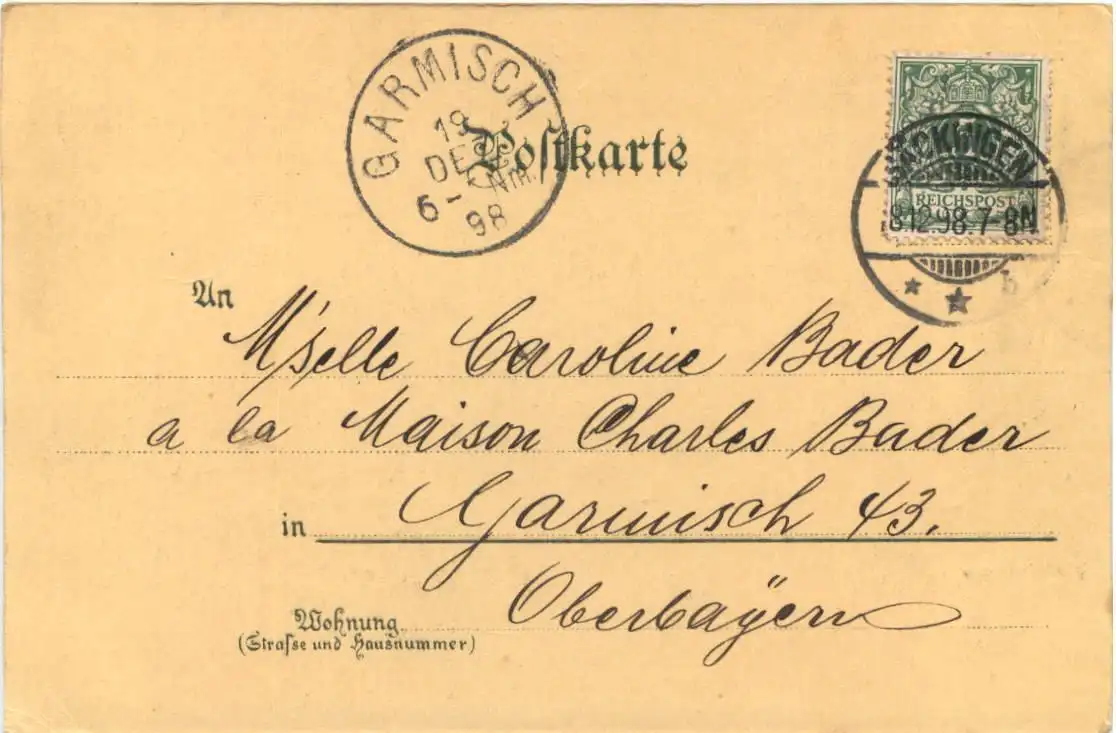 GARMISCH
19
DEZ
6- Nm.
98
Postkarte
SÄCKINGEN
REICHSPOST
8.12.98.7-8N
b
An
M'selle Caroline Bader
a la Maison Charles Bader
in Garmisch 43.
Oberbayern
Wohnung
(Strasse und Hausnummer)